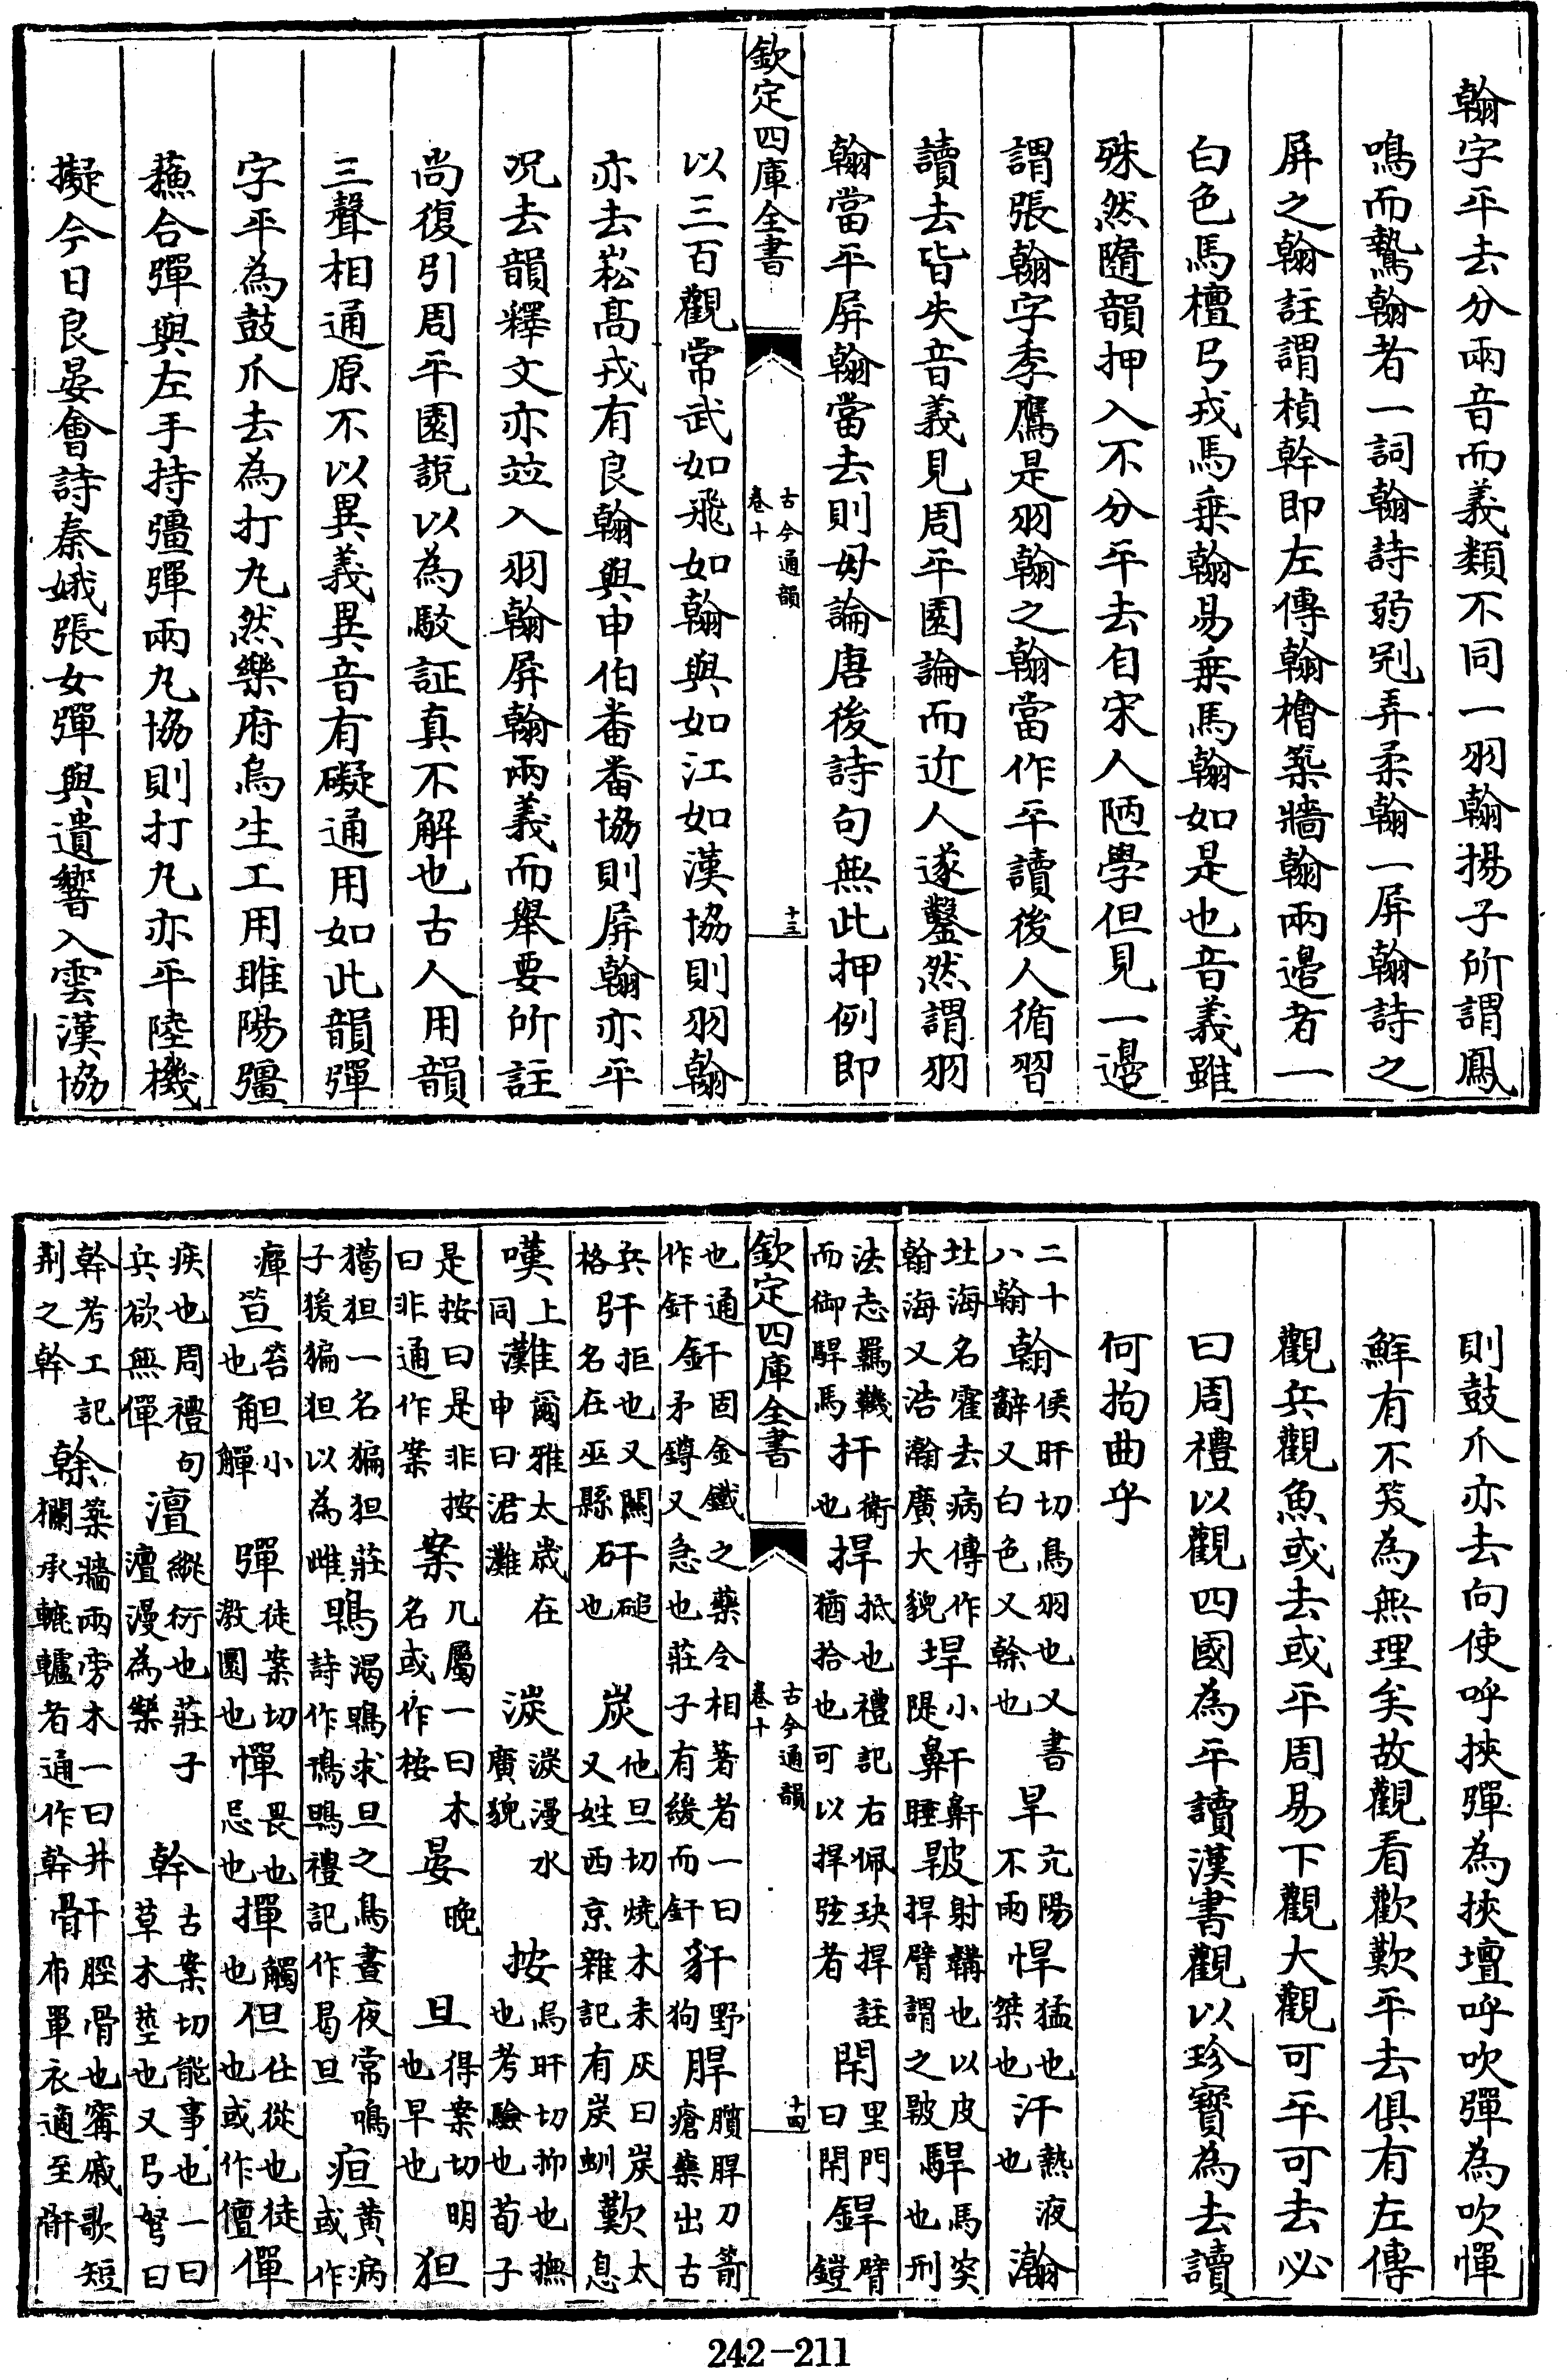 翰字平去分兩音而義類不同一羽翰揚子所謂鳳
鳴而鷙翰者一詞翰詩芶剡弄柔翰一屏翰詩之
屏之翰註謂楨幹即左傳翰檜築牆翰兩邊者一
白色馬檀弓戎馬乗翰易乗馬翰如是也音義雖
殊然隨韻押入不分平去自宋人陋學但見一邊
謂張翰字季鷹是羽翰之翰當作平讀後人循習
讀去皆失音義見周平園論而近人遂鑿然謂羽
翰當平屏翰當去則毋論唐後詩句無此押例即
欽定四庫全書
古今通韻
卷十
十三
以三百觀常武如飛如翰與如江如漢協則羽翰
亦去崧髙戎有良翰與申伯番番協則屏翰亦平
况去韻釋文亦竝入羽翰屏翰兩義而舉要所註
尚復引周平園說以為駁証真不解也古人用韻
三聲相通原不以異義異音有礙通用如此韻彈
字平為鼓爪去為打丸然樂府烏生工用睢陽彊
蘓合彈與左手持彊彈兩丸協則打丸亦平陸機
擬今日良晏會詩秦娥張女彈與遺響入雲漢協
則鼓爪亦去向使呼挾彈為挾壇呼吹彈為吹憚
鮮有不笑為無理矣故觀看歡歎平去俱有左傳
觀兵觀魚或去或平周易下觀大觀可平可去必
曰周禮以觀四國為平讀漢書觀以珍寳為去讀
何拘曲乎
二十八翰 翰侯旰切鳥羽也又書辭又白色又榦也 旱亢陽不雨 悍猛也桀也 汗熱液也 瀚
北海名霍去病傳作翰海又浩瀚廣大貌 垾小隄 鼾鼻睡 皯射韝也以皮捍臂謂之皯 駻馬突也刑
法志羈鞿而御駻馬 扞衛也 捍抵也禮記右佩玦捍註猶拾也可以捍弦者 閈里門曰閈 銲臂鎧
欽定四庫全書
古今通韻
卷十
十四
也通釬固金鐵之藥令相著者一曰作釬 釬矛鐏又急也莊子有緩而釬 豻野狗 䏷臏䏷刀箭瘡藥出古
兵格 㢨拒也又闗名在巫縣 矸硟也 炭他旦切燒木未灰曰炭又姓西京雜記有炭虯 歎太息
嘆上同 灘爾雅太歲在申曰涒灘 湠湠漫水廣貌 按烏旰切抑也撫也考驗也荀子
是按曰是非按曰非通作案 案几屬一曰木名或作桉 晏晚 旦得案切明也早也 狚
獦狚一名猵狚莊子猨猵狚以為雌 鴠渴鴠求旦之鳥晝夜常鳴詩作鳱鴠禮記作曷旦 疸黃病或作
癉 笪笞也 觛小觶 彈徒案切激圜也 憚畏也忌也 撣觸也 但任從也徒也或作儃 僤
疾也周禮句兵欲無僤 澶縱衍也莊子澶漫為樂 幹古案切能事也一曰草木莖也又弓弩曰
幹考工記荆之幹 榦築牆兩旁木一曰井欄承轆轤者通作幹 骭脛骨也寗戚歌短布單衣適至骭
242-211